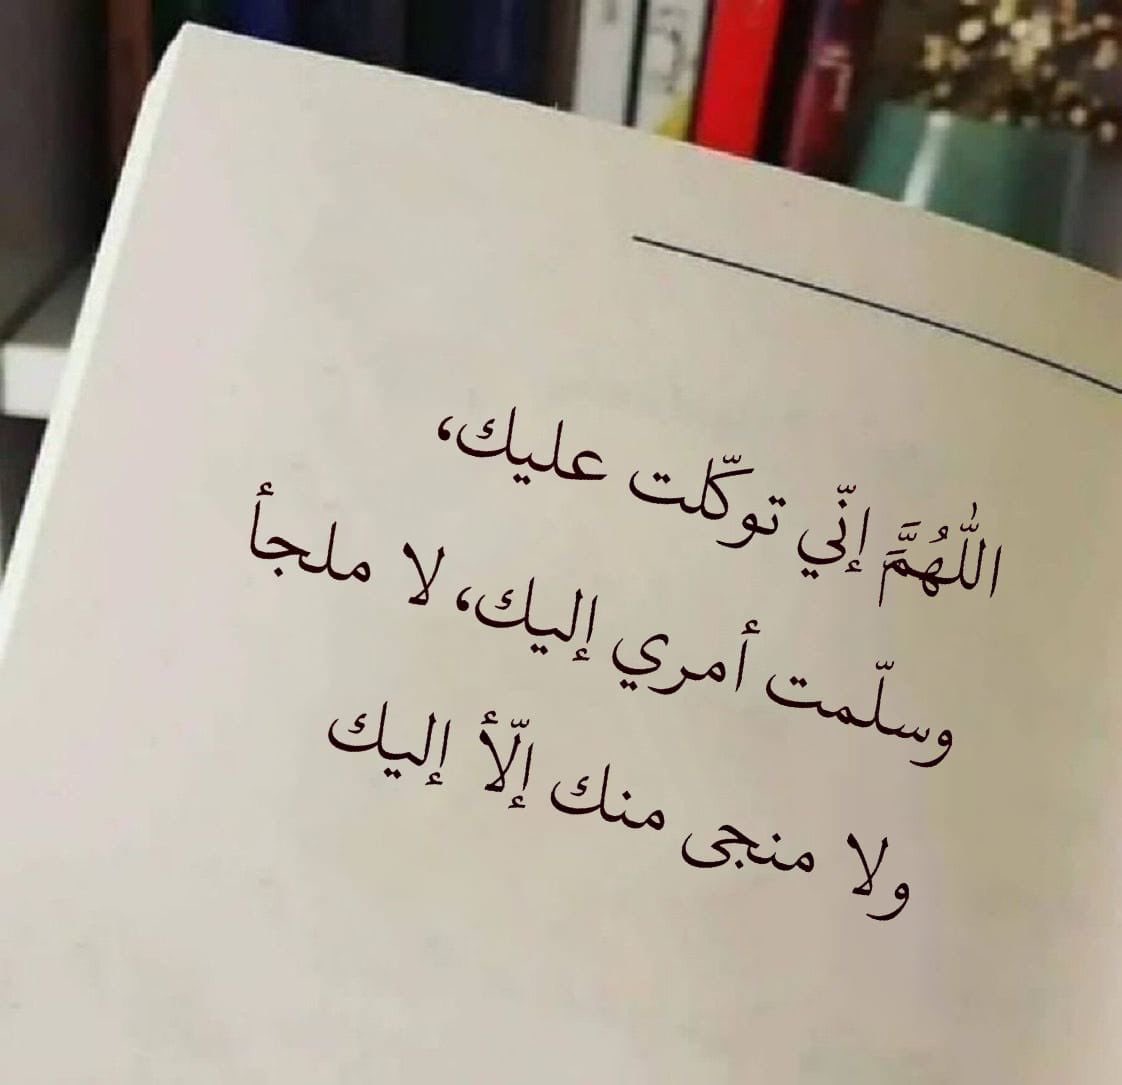 اللّٰهُمَّ إنّي توكّلت عليك،
وسلّمت أمري إليك، لا ملجأ
ولا منجى منك إلّأ إليك